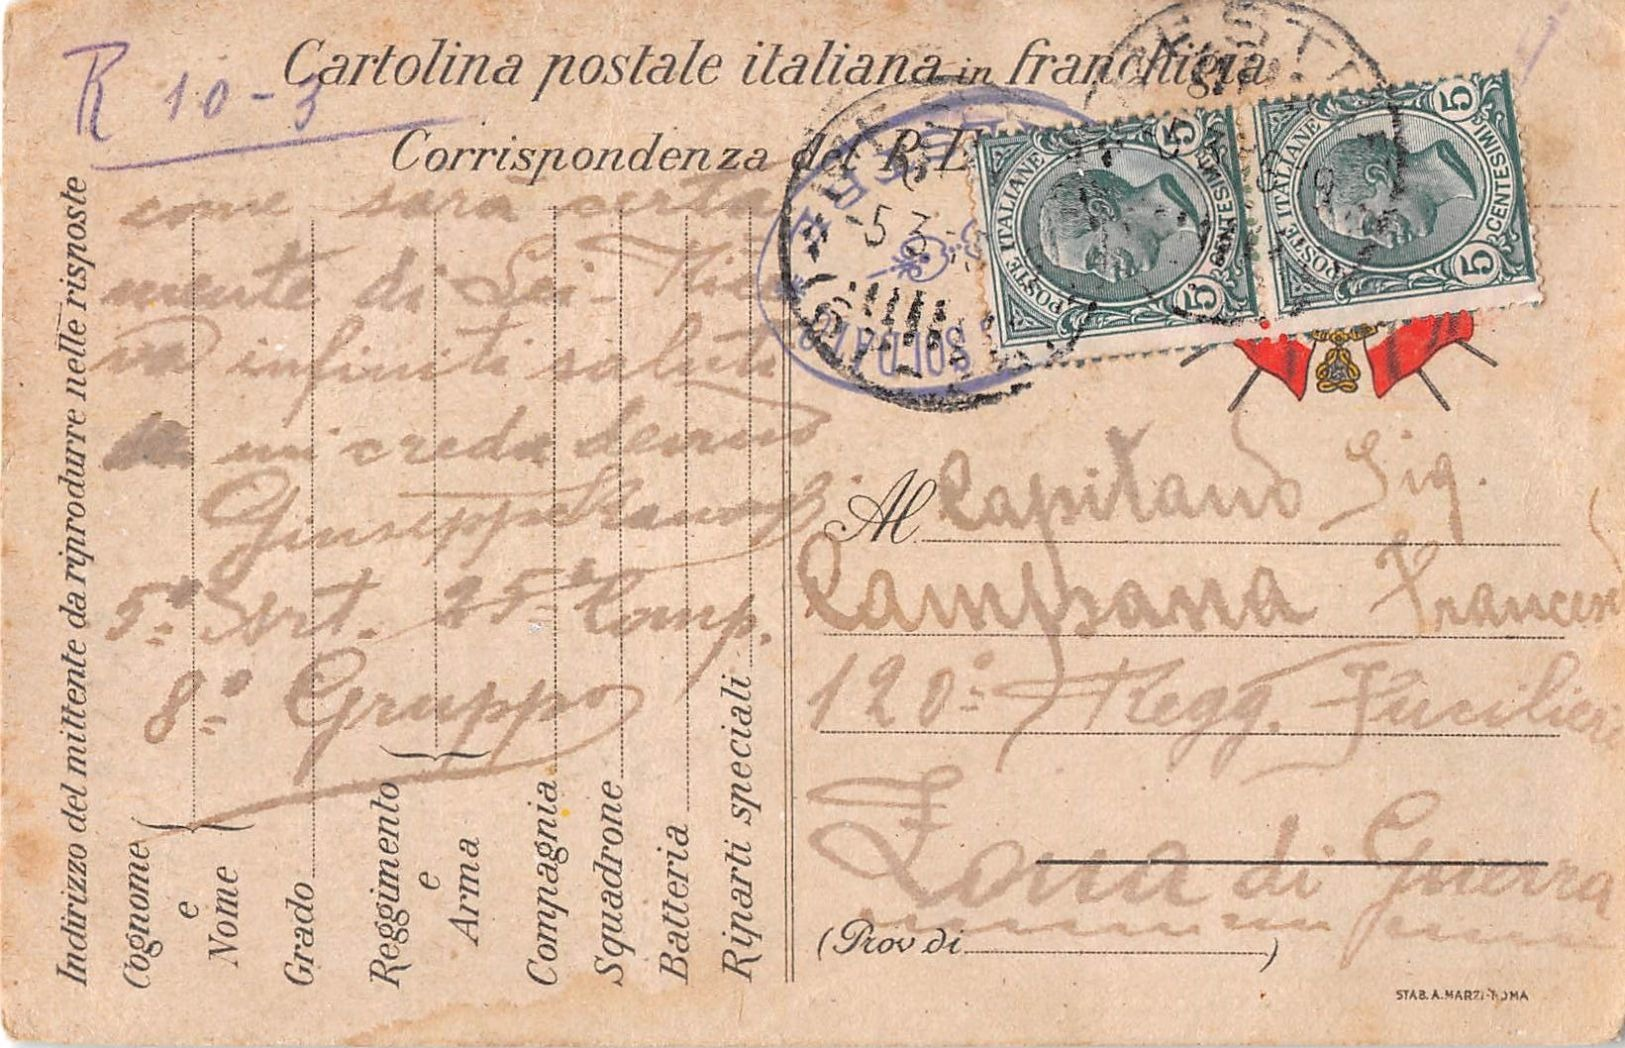 Cartolina postale italiana in franchigia
Corrispondenza del R. E
R 10-3
Indirizzo del mittente da riprodurre nelle risposte
come sarà certa
mente di Lei-
infiniti saluti
mi creda
Giuseppe
5° Art. 25ª Comp.
8° Gruppo
Cognome
e
Nome
Grado
Reggimento
e
Arma
Compagnia
Squadrone
Batteria
Riparti speciali
SOLDATO
POSTE ITALIANE
5 CENTESIMI 5
POSTE ITALIANE
5 CENTESIMI 5
Al Capitano Sig.
Campana
120° Regg. Fucilieri
Zona di Guerra
(Prov di )
STAB. A. MARZI-ROMA